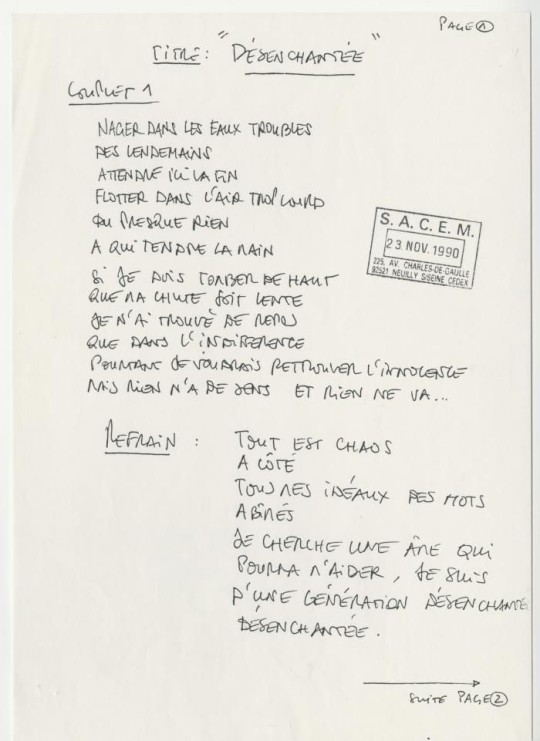 PAGE 1
TITRE: "DÉSENCHANTÉE"
COUPLET 1
NAGER DANS LES EAUX TROUBLES
DES LENDEMAINS
ATTENDRE ICI LA FIN
FLOTTER DANS L'AIR TROP LOURD
DU PRESQUE RIEN
A QUI TENDRE LA MAIN
S. A. C. E. M.
23 NOV. 1990
225, AV. CHARLES-DE-GAULLE
92521 NEUILLY S/SEINE CEDEX
SI JE DOIS TOMBER DE HAUT
QUE MA CHUTE SOIT LENTE
JE N'AI TROUVÉ DE REPOS
QUE DANS L'INDIFERENCE
POURTANT JE VOUDRAIS RETROUVER L'INNOCENCE
MAIS RIEN N'A DE SENS ET RIEN NE VA...
REFRAIN : TOUT EST CHAOS
A CÔTÉ
TOUS MES IDÉAUX DES MOTS
ABÎMÉS
JE CHERCHE UNE ÂME QUI
POURRA M'AIDER, JE SUIS
D'UNE GÉNÉRATION DÉSENCHANTÉE
DÉSENCHANTÉE.
SUITE PAGE 2